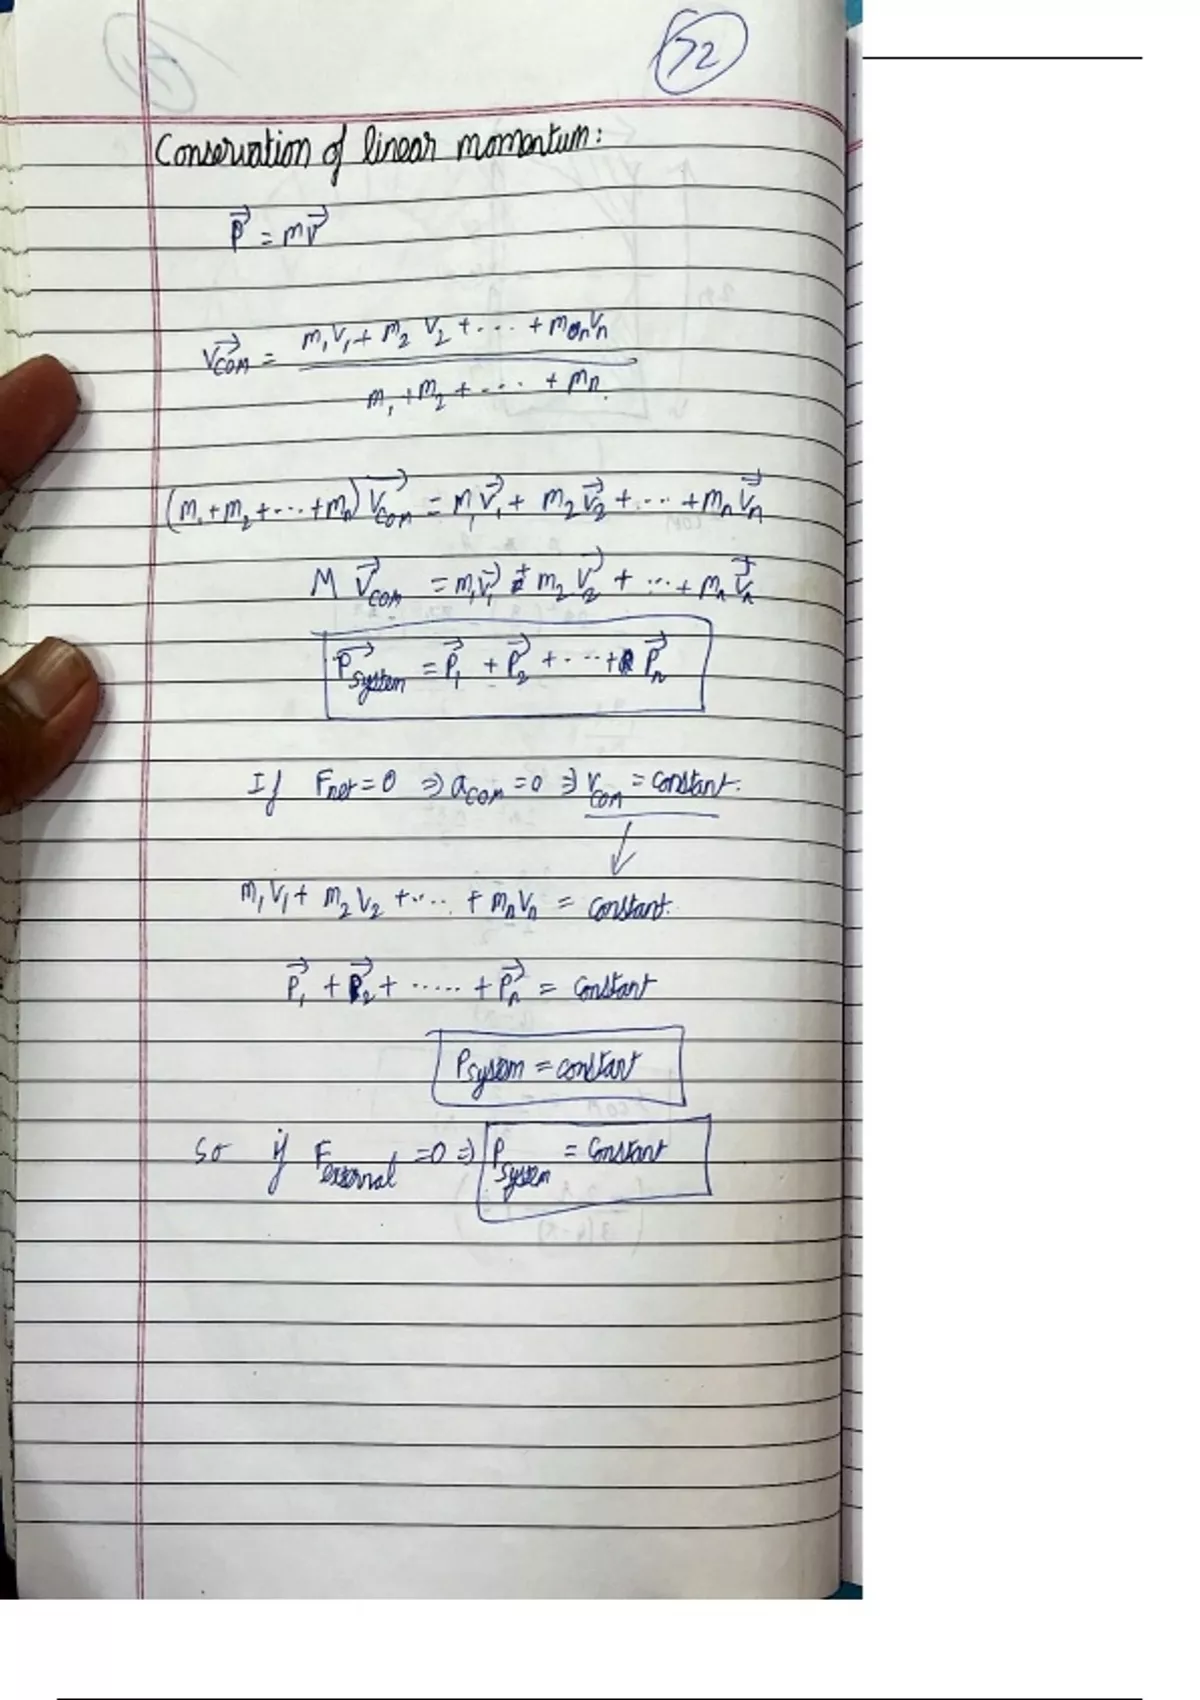 52
Conservation of linear momentum:
P⃗ = mv⃗
v⃗COM = (m₁v₁ + m₂v₂ + .... + mₙvₙ) / (m₁ + m₂ + .... + mₙ)
(m₁ + m₂ + ... + mₙ) v⃗COM = m₁v⃗₁ + m₂v⃗₂ + .... + mₙv⃗ₙ
M v⃗COM = m₁v⃗₁ + m₂v⃗₂ + .... + mₙv⃗ₙ
P⃗system = P⃗₁ + P⃗₂ + .... + P⃗ₙ
If Fnet = 0 ⇒ aCOM = 0 ⇒ vCOM = constant.
m₁v₁ + m₂v₂ + .... + mₙvₙ = constant.
P⃗₁ + P⃗₂ + ..... + P⃗ₙ = constant
Psystem = constant
So if Fexternal = 0 ⇒ Psystem = constant